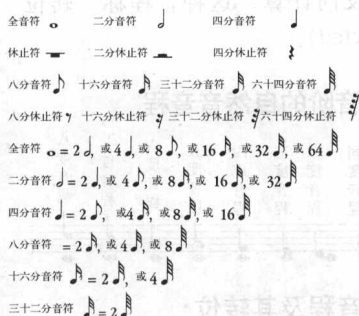 全音符 𝅝 二分音符 𝅗𝅥 四分音符 𝅘𝅥
休止符 𝄻 二分休止符 𝄼 四分休止符 𝄽
八分音符 𝅘𝅥𝅮 十六分音符 𝅘𝅥𝅯 三十二分音符 𝅘𝅥𝅰 六十四分音符 𝅘𝅥𝅱
八分休止符 𝄾 十六分休止符 𝄿 三十二分休止符 𝅀 六十四分休止符 𝅁
全音符 𝅝 = 2 𝅗𝅥, 或 4 𝅘𝅥, 或 8 𝅘𝅥𝅮, 或 16 𝅘𝅥𝅯, 或 32 𝅘𝅥𝅰, 或 64 𝅘𝅥𝅱
二分音符 𝅗𝅥 = 2 𝅘𝅥, 或 4 𝅘𝅥𝅮, 或 8 𝅘𝅥𝅯, 或 16 𝅘𝅥𝅰, 或 32 𝅘𝅥𝅱
四分音符 𝅘𝅥 = 2 𝅘𝅥𝅮, 或4 𝅘𝅥𝅯, 或 8 𝅘𝅥𝅰, 或 16 𝅘𝅥𝅱
八分音符 = 2 𝅘𝅥𝅯, 或 4 𝅘𝅥𝅰, 或 8 𝅘𝅥𝅱
十六分音符 𝅘𝅥𝅯 = 2 𝅘𝅥𝅰, 或 4 𝅘𝅥𝅱
三十二分音符 𝅘𝅥𝅰 = 2 𝅘𝅥𝅱